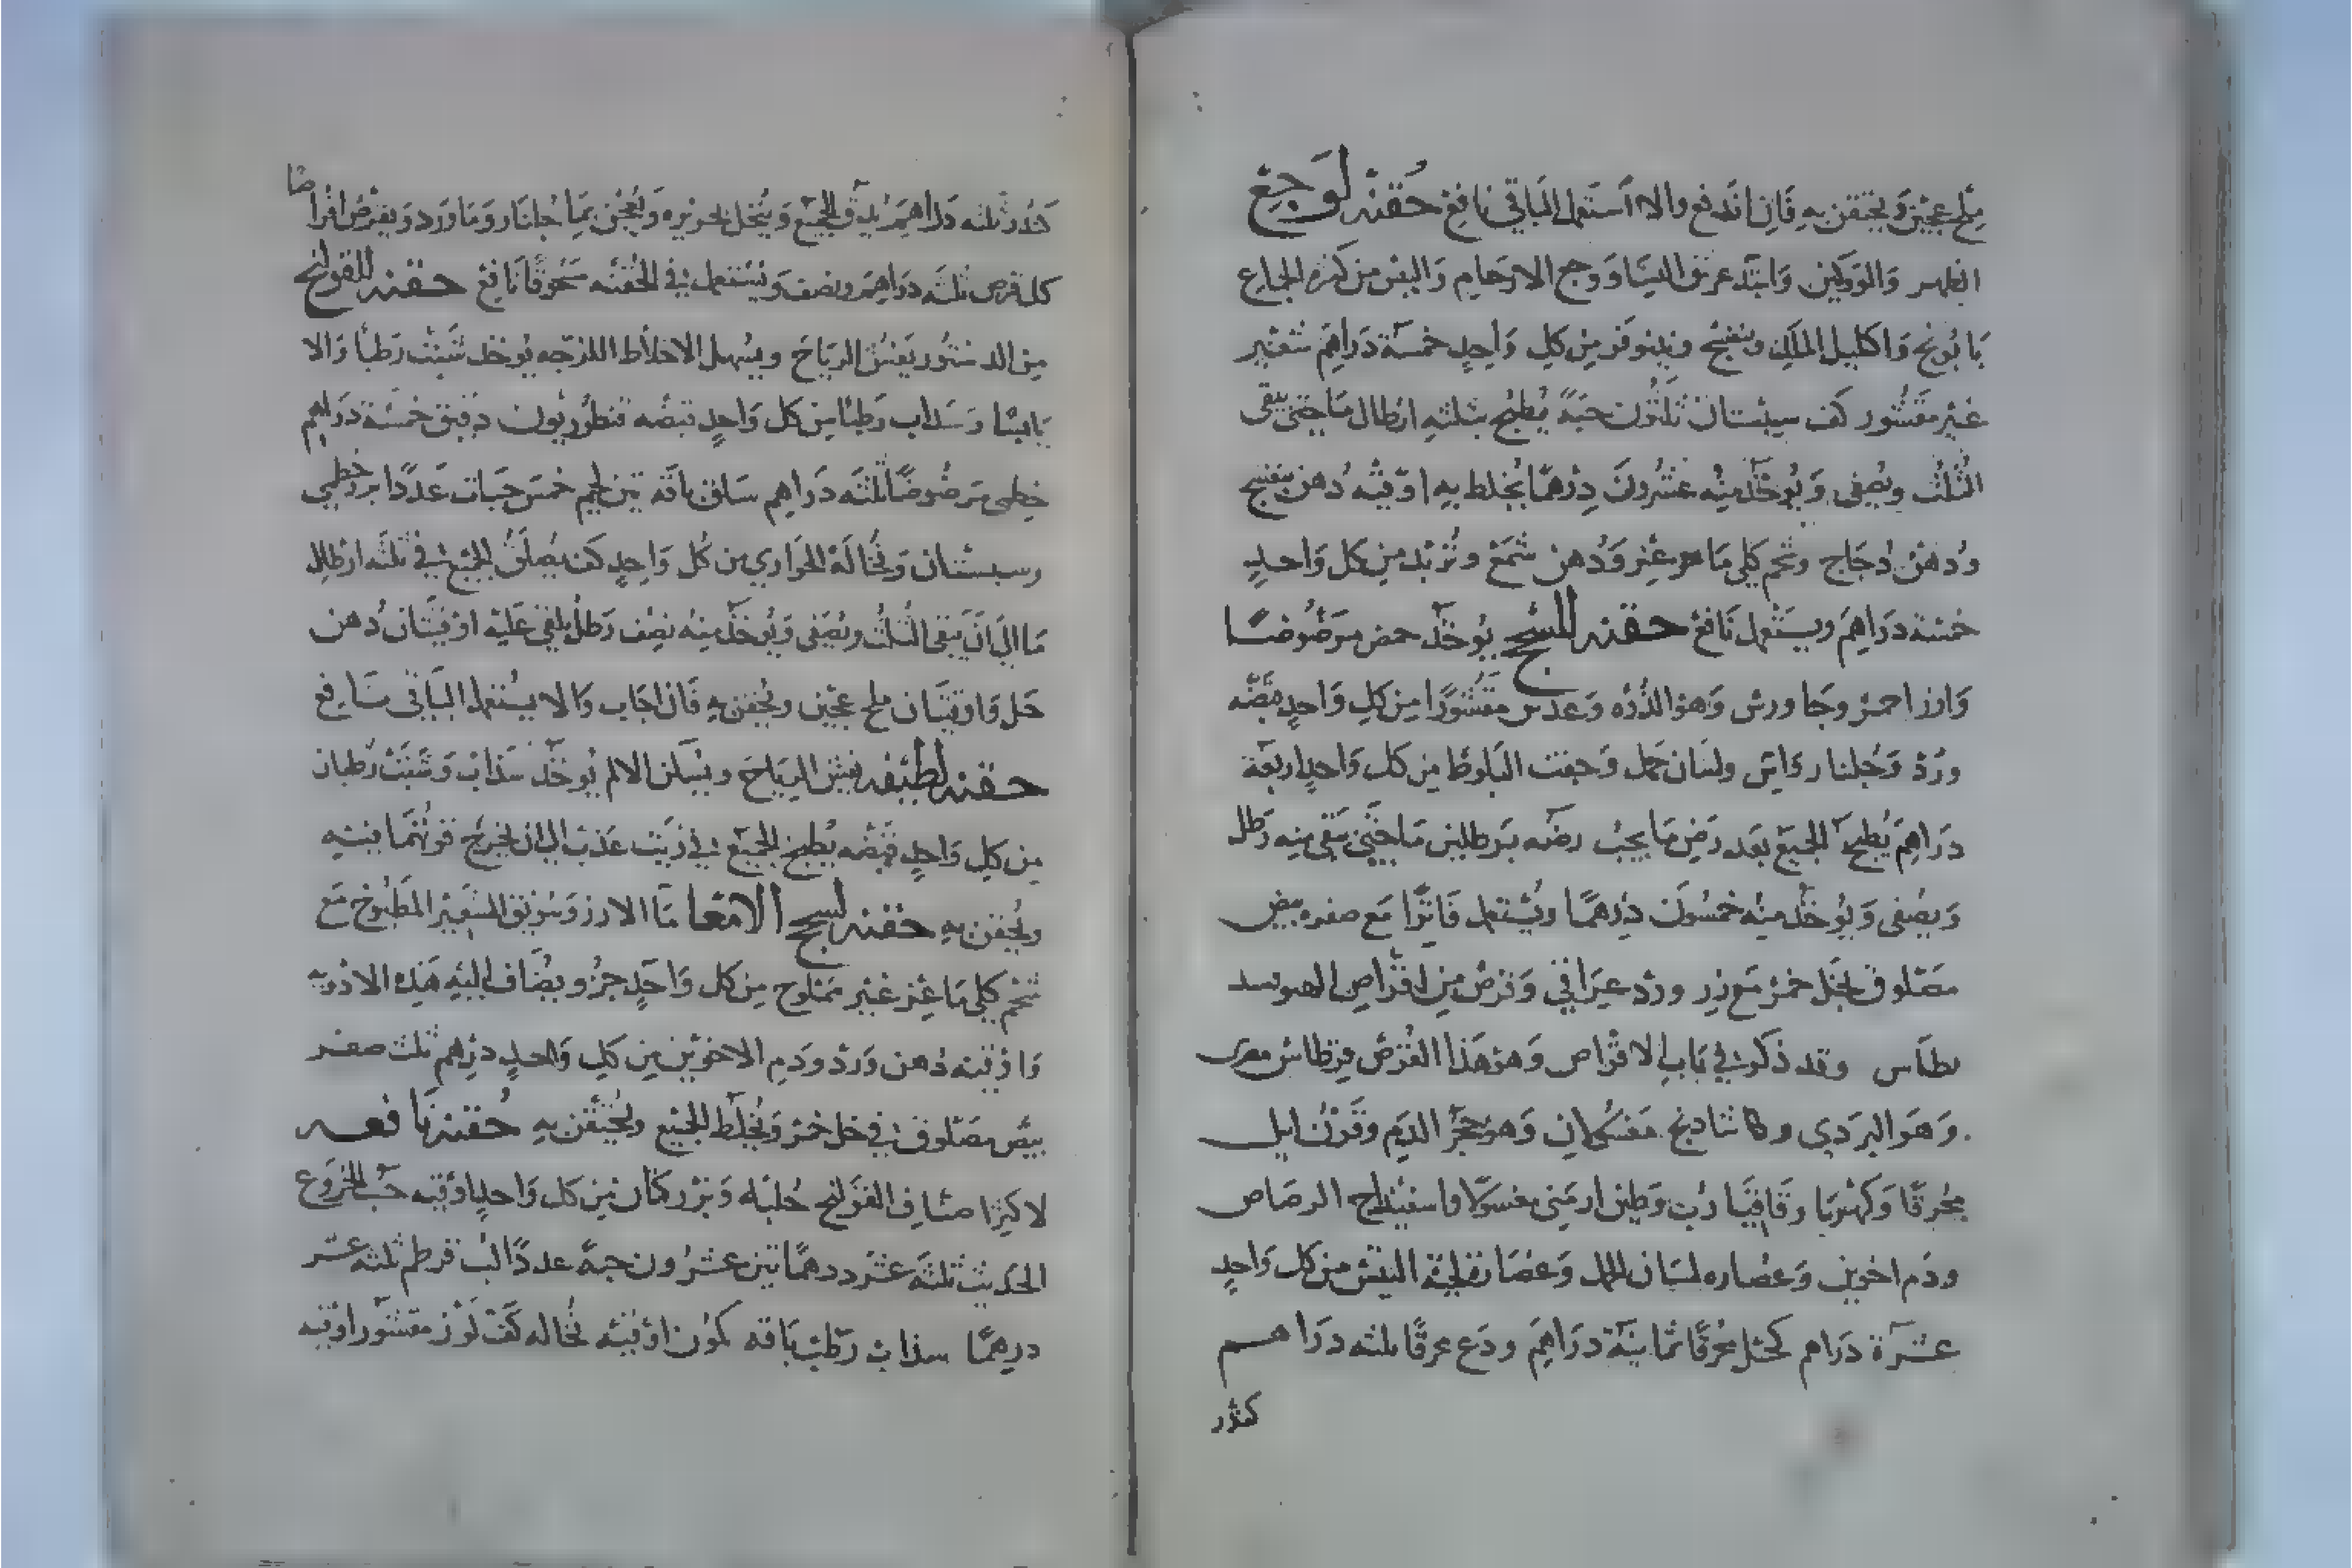 ملح عجين ويحتقن به فان اندفع والا استعمل الباقي نافع حقنه لوجع
الظهر والوركين وابتدا عرق النسا ووجع الارحام واليبس من كثره الجماع
بابونج واكليل الملك وبنفسج ونينوفر من كل واحد خمسة دراهم شعير
غير مقشور كف سبستان ثلثون حبة يطبخ بثلثه ارطال ما حتى يبقى
الثلث ويصفى ويوخذ منه عشرون درهما يخلط به اوقيه دهن بنفسج
ودهن دجاج وشحم كلى ماعز ودهن شمع وتربد من كل واحد
خمسة دراهم ويستعمل نافع حقنه للسحج يوخذ حمص مرضوضا
وارز احمر وجاورش وهو الذره وعدس مقشورا من كل واحد قبضه
ورد وجلنار واس ولسان حمل وجفت البلوط من كل واحد اربعة
دراهم يطبخ الجميع بعد رض ما يجب رضه برطلين ما حتى يبقى منه رطل
ويصفى ويوخذ منه خمسون درهما ويستعمل فاترا مع صفره بيض
مصلوق بخل خمر مع زر ورد عراقي وقرص من اقراص
وقد ذكر في باب الاقراص وهو هذا القرص قرطاس مصرى
وهو البردي وشادنج وهو حجر الدم وقرن ايل
محرقا وكهربا وقاقيا رب وطين ارمني مغسولا واسفيداج الرصاص
ودم اخوين وعصاره لسان الحمل وعصاره لحية التيس من كل واحد
عشرة دراهم كحل محرقا ثمانية دراهم ودع محرقا ثلثه دراهم
كندر
كندر ثلثه دراهم يدق الجميع وينخل بحريره ويعجن بما جلنار وما ورد ويقرص اقراصا
كل قرص ثلثه دراهم ونصف ويستعمل في الحقنه مسحوقا نافع حقنه للقولنج
من الدستور يفش الرياح ويسهل الاخلاط اللزجه يوخذ شبث رطبا والا
يابسا وسداب رطبا من كل واحد قبضه قنطوريون دقيق خمسة دراهم
خطمى مرضوضا ثلثه دراهم سلق باقه تين لحيم خمس حبات عددا بزر خطمي
وسبستان ونخالة الحواري من كل واحد كف يصلق الجميع في ثلثه ارطال
ما الى ان يبقى الثلث ويصفى ويوخذ منه نصف رطل يلقى عليه اوقيتان دهن
حل واوقيتان ملح عجين ويحقن به فان اجاب والا يستعمل الباقي نافع
حقنه لطيفه تفش الرياح ويسكن الالم يوخذ سذاب وشبث رطبان
من كل واحد قبضه يطبخ الجميع في زيت عذب الى ان تخرج قوتهما فيه
ويحقن به حقنه لسحج الامعا ما الارز وسويق الشعير المطبوخ مع
شحم كلى ماعز غير مملوح من كل واحد جزو يضاف اليه هذه الادويه
واوقيه دهن ورد ودم الاخوين من كل واحد درهم ثلث صفر
بيض مصلوق في خل خمر ويخلط الجميع ويحتقن به حقنه نافعه
لاكثر اصناف القولنج حلبه وبزر كتان من كل واحد اوقيه حب الخروع
الحديث ثلثة عشر درهما تين عشرون حبة عددا لب قرطم ثلثه عشر
درهما سذاب رطب باقه كمون اوقيه نخاله كف لوز مقشور اوقيه